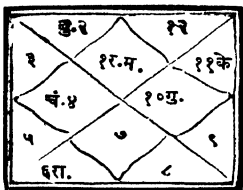 बु.२ १२
३ १र.म. ११के
चं.४ १०गु.
५ ७ ९
६रा. ८